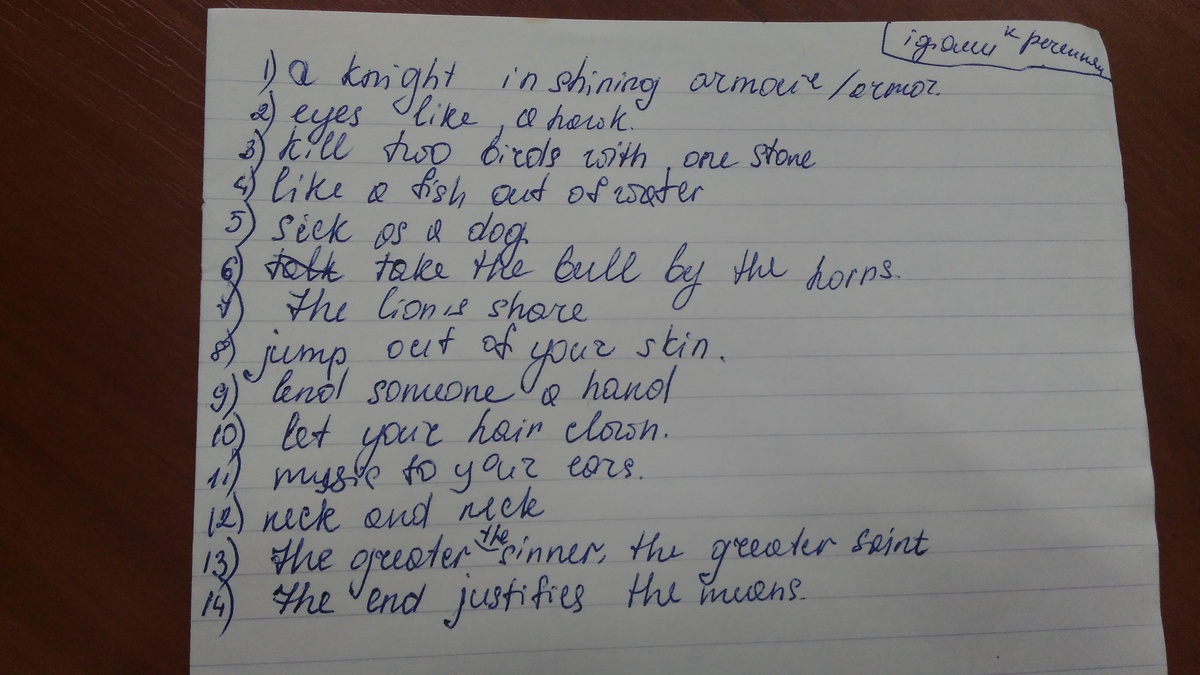 ідіоми к реченням
1) a knight in shining armour/armor.
2) eyes like a hawk.
3) kill two birds with one stone
4) like a fish out of water
5) sick as a dog
6) talk take the bull by the horns.
7) the lion's share
8) jump out of your skin.
9) lend someone a hand
10) let your hair down.
11) mysic to your ears.
12) neck and neck
13) the greater the sinner, the greater saint
14) the end justifies the means.